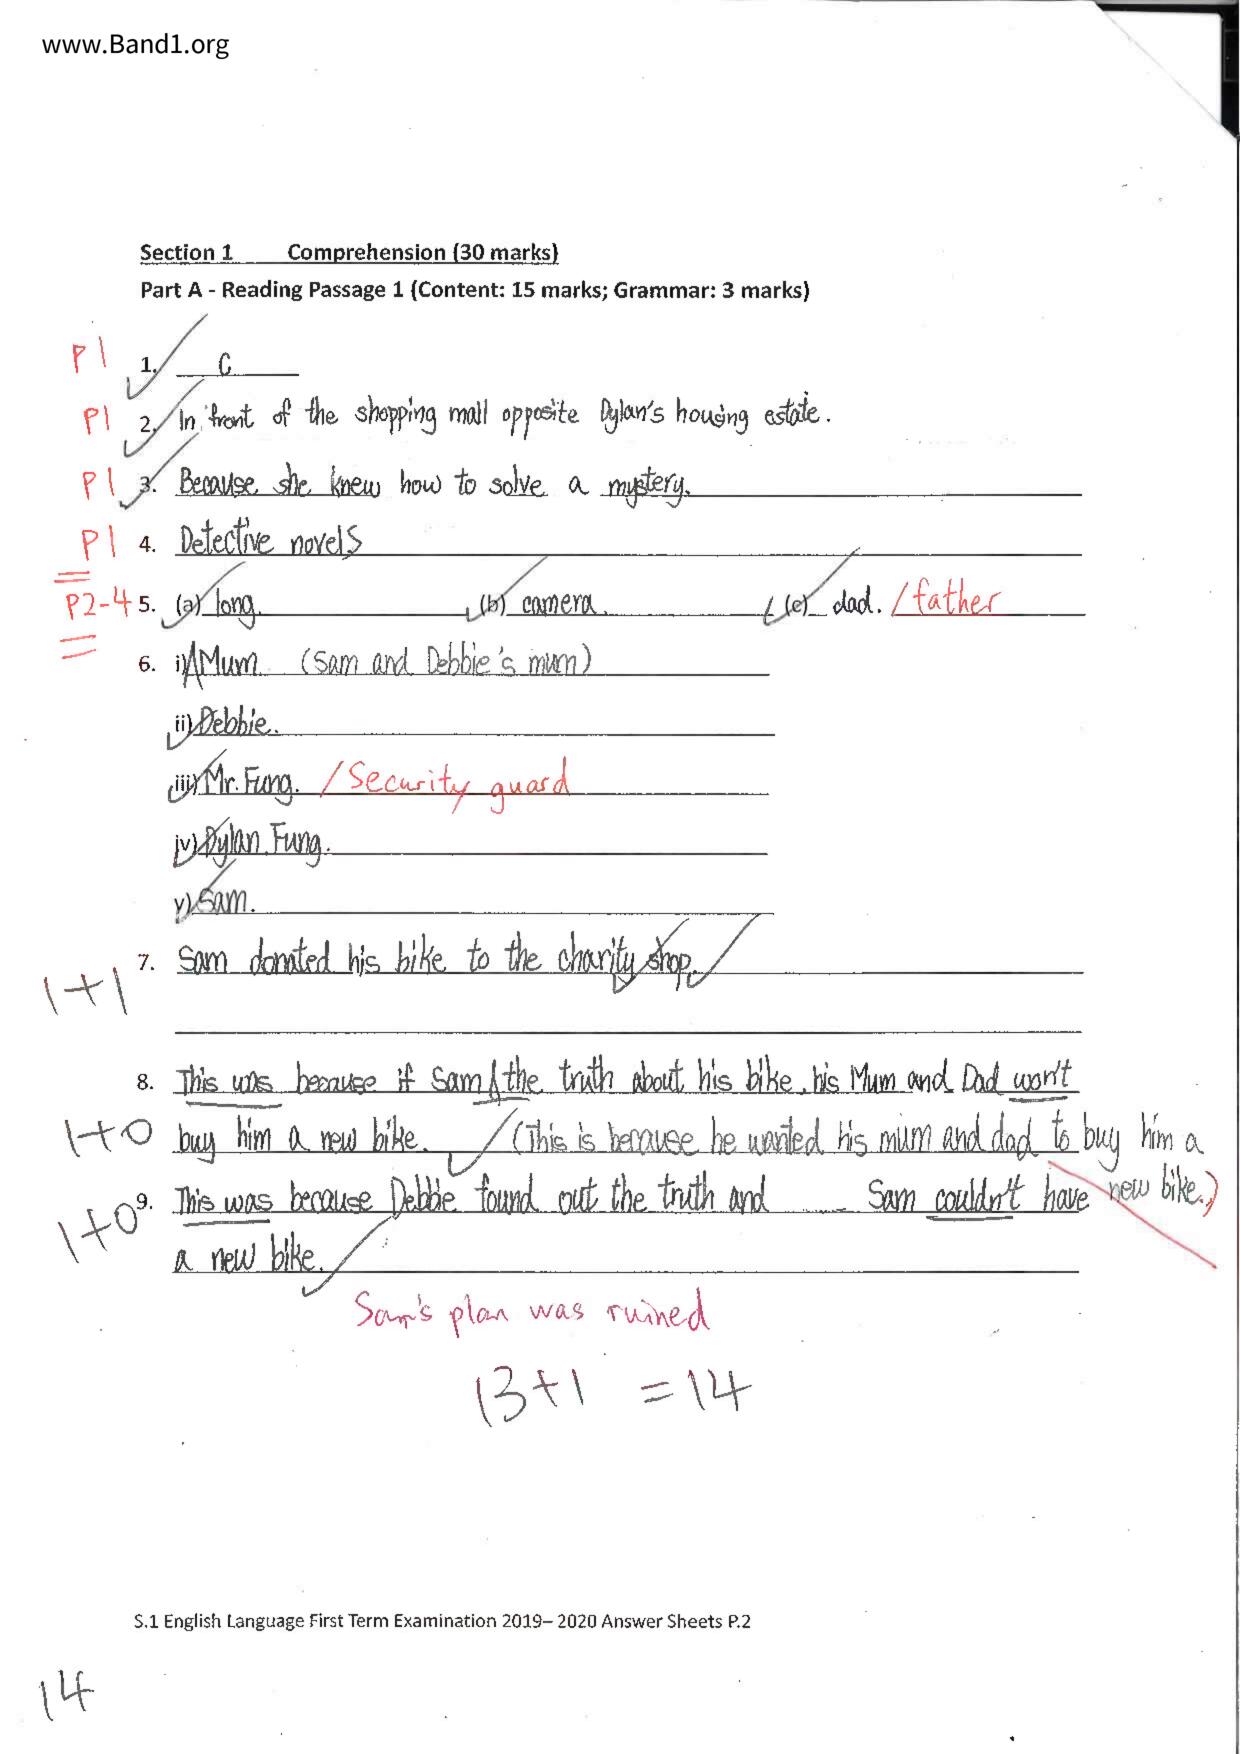 www.Band1.org
Section 1 Comprehension (30 marks)
Part A - Reading Passage 1 (Content: 15 marks; Grammar: 3 marks)
P1 1. C
P1 2. In front of the shopping mall opposite Dylan's housing estate.
P1 3. Because she knew how to solve a mystery.
P1 4. Detective novels
P2-4 5. (a) long. (b) camera. (c) dad. /father
6. i) Mum (Sam and Debbie's mum)
ii) Debbie.
iii) Mr. Fung. /Security guard
iv) Dylan Fung.
v) Sam.
7. Sam donated his bike to the charity shop.
1+1
8. This was because if Sam the truth about his bike, his Mum and Dad won't
1+0 buy him a new bike. (This is because he wanted his mum and dad to buy him a
new bike.)
1+0 9. This was because Debbie found out the truth and Sam couldn't have
a new bike.
Sam's plan was ruined
13+1 =14
S.1 English Language First Term Examination 2019– 2020 Answer Sheets P.2
14